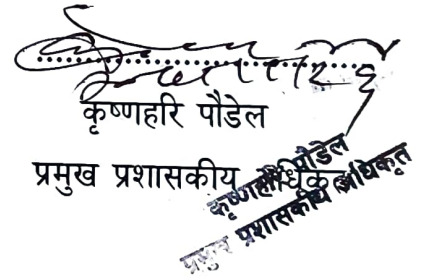 कृष्णहरि पौडेल
प्रमुख प्रशासकीय अधिकृत
कृष्णहरि पौडेल
प्रमुख प्रशासकीय अधिकृत